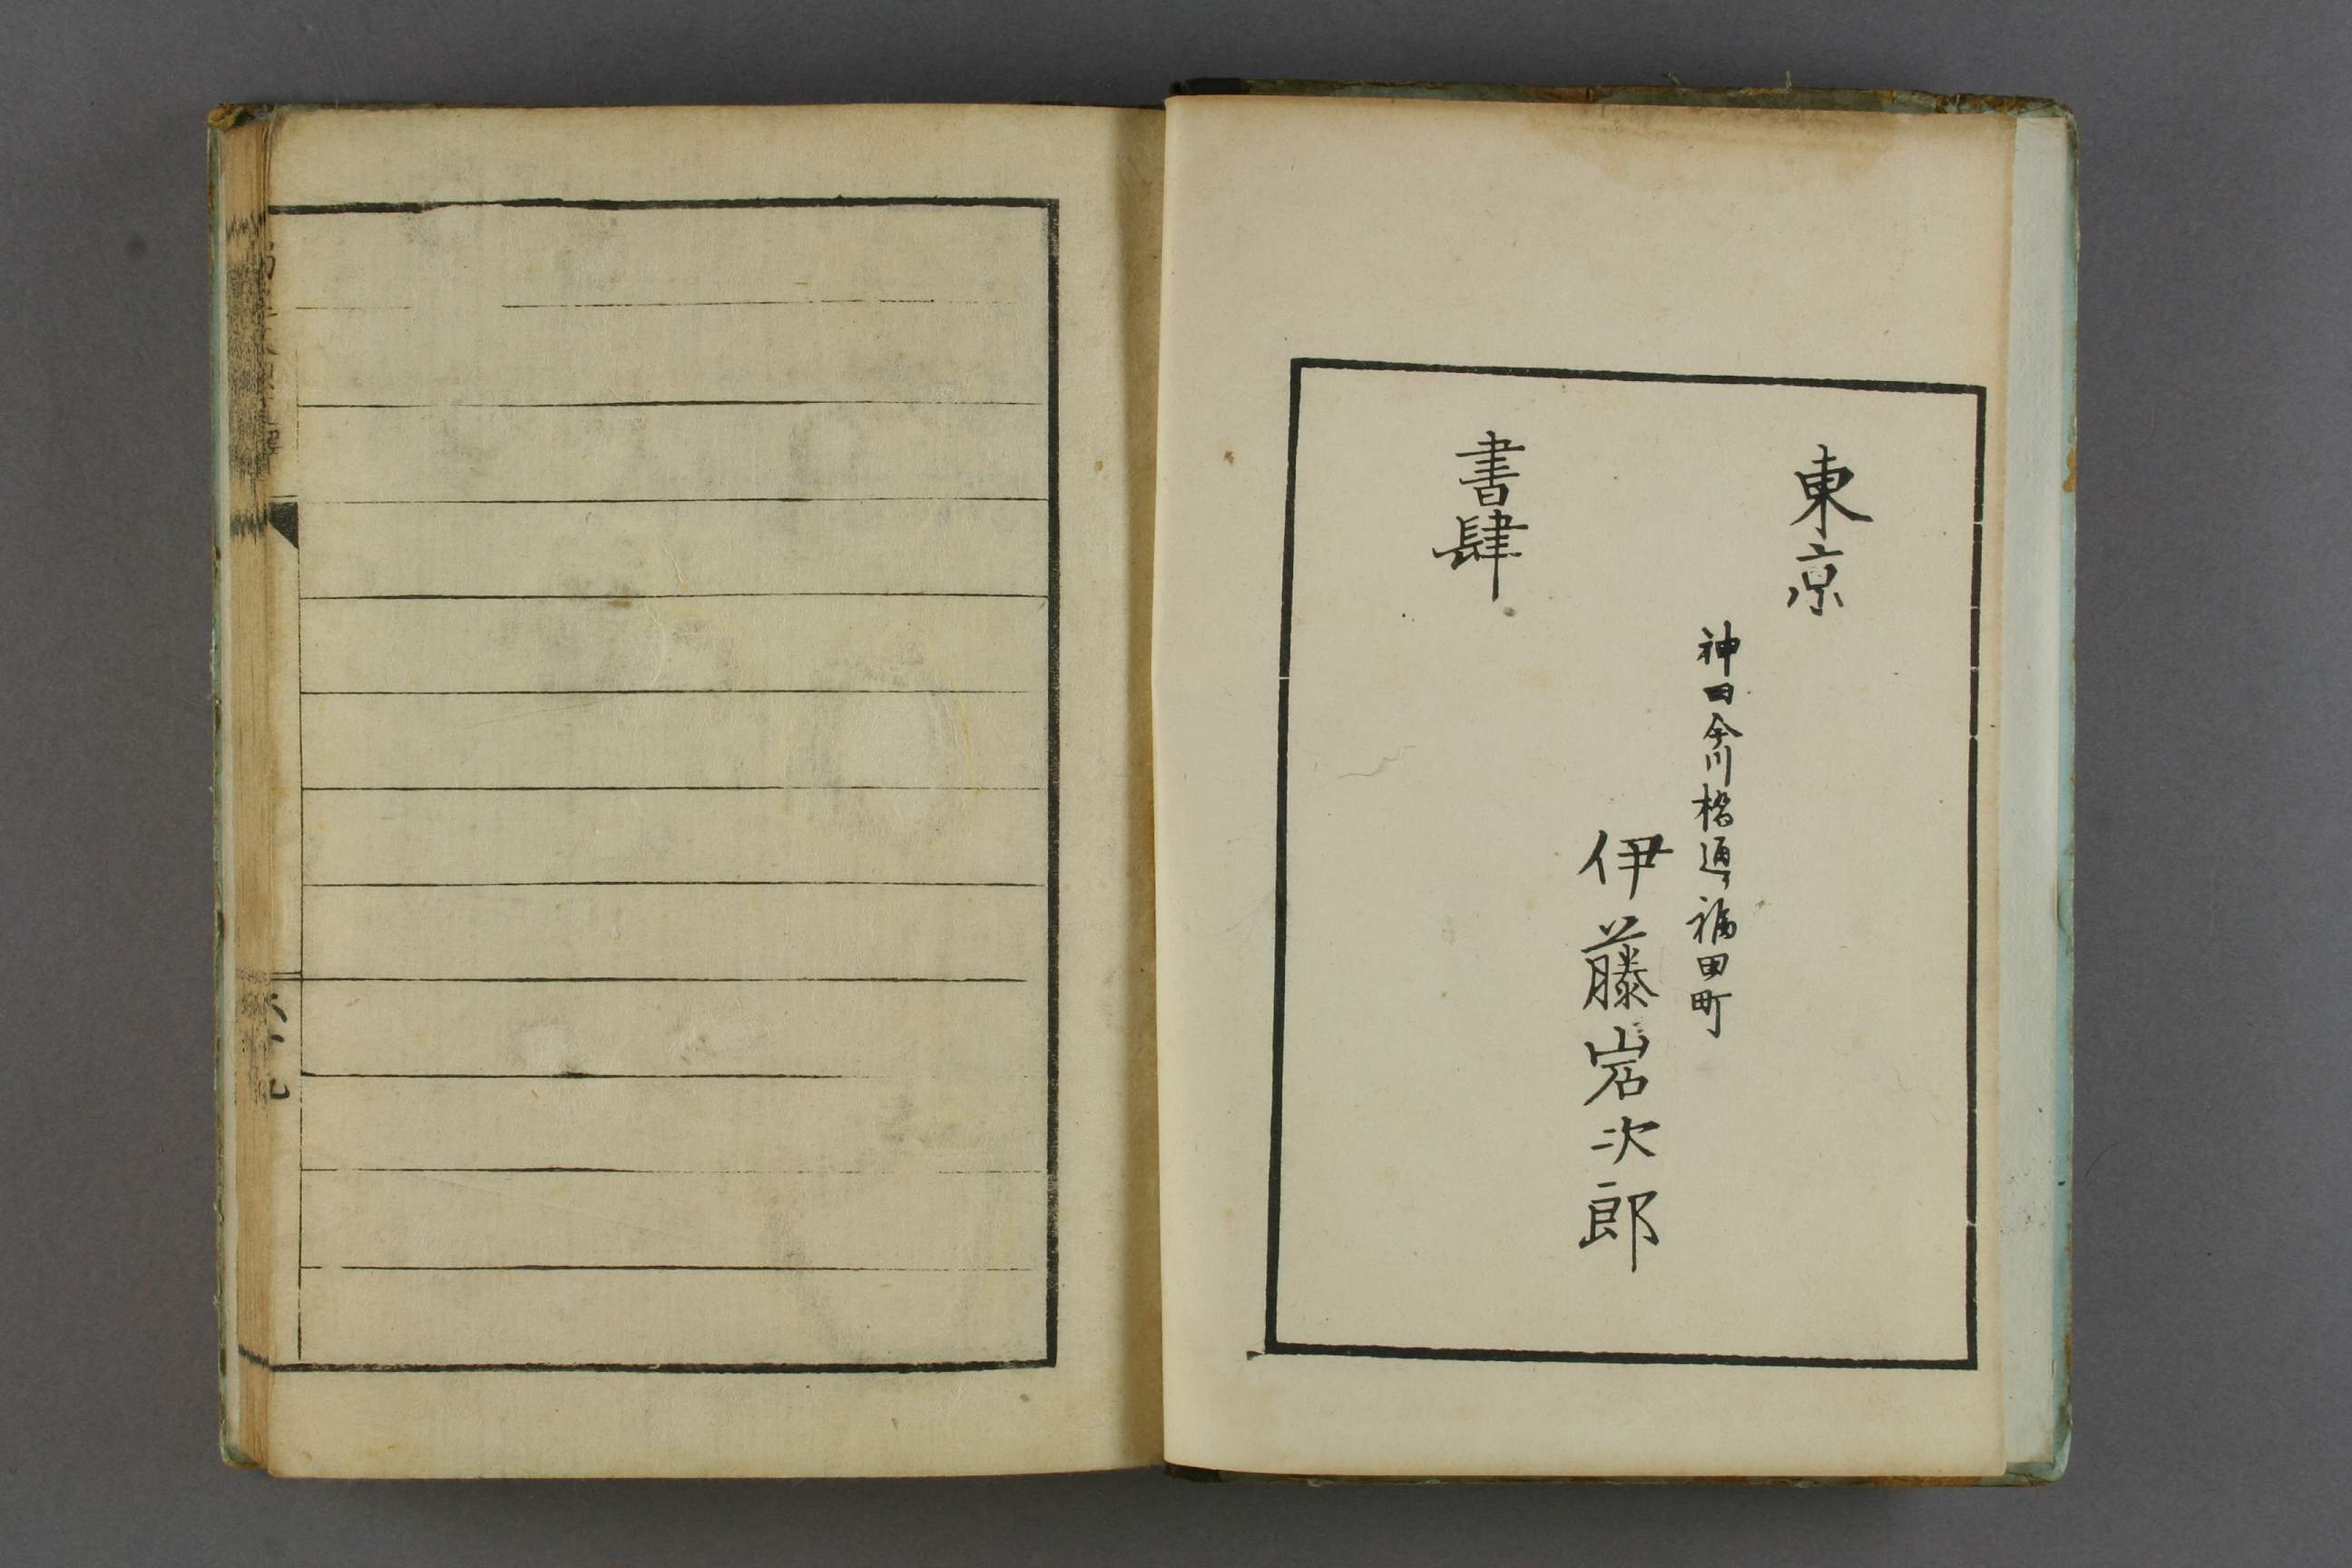 東京
神田今川橋通福田町
伊藤岩次郎
書肆